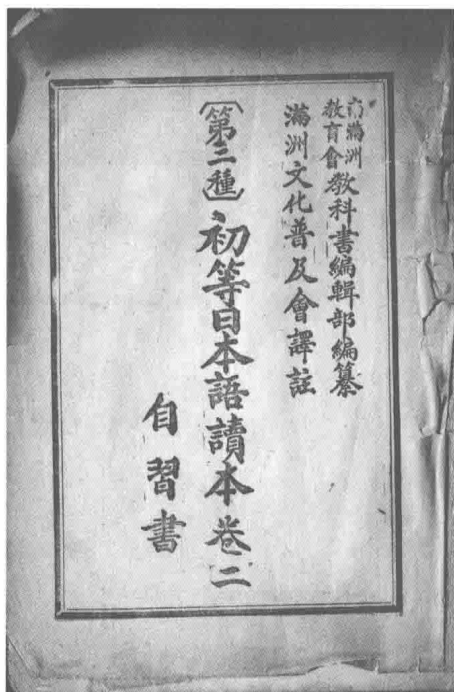 南滿洲
教育會
教科書編輯部編纂
滿洲文化普及會譯註
〔第二種〕初等日本語讀本卷二
自習書